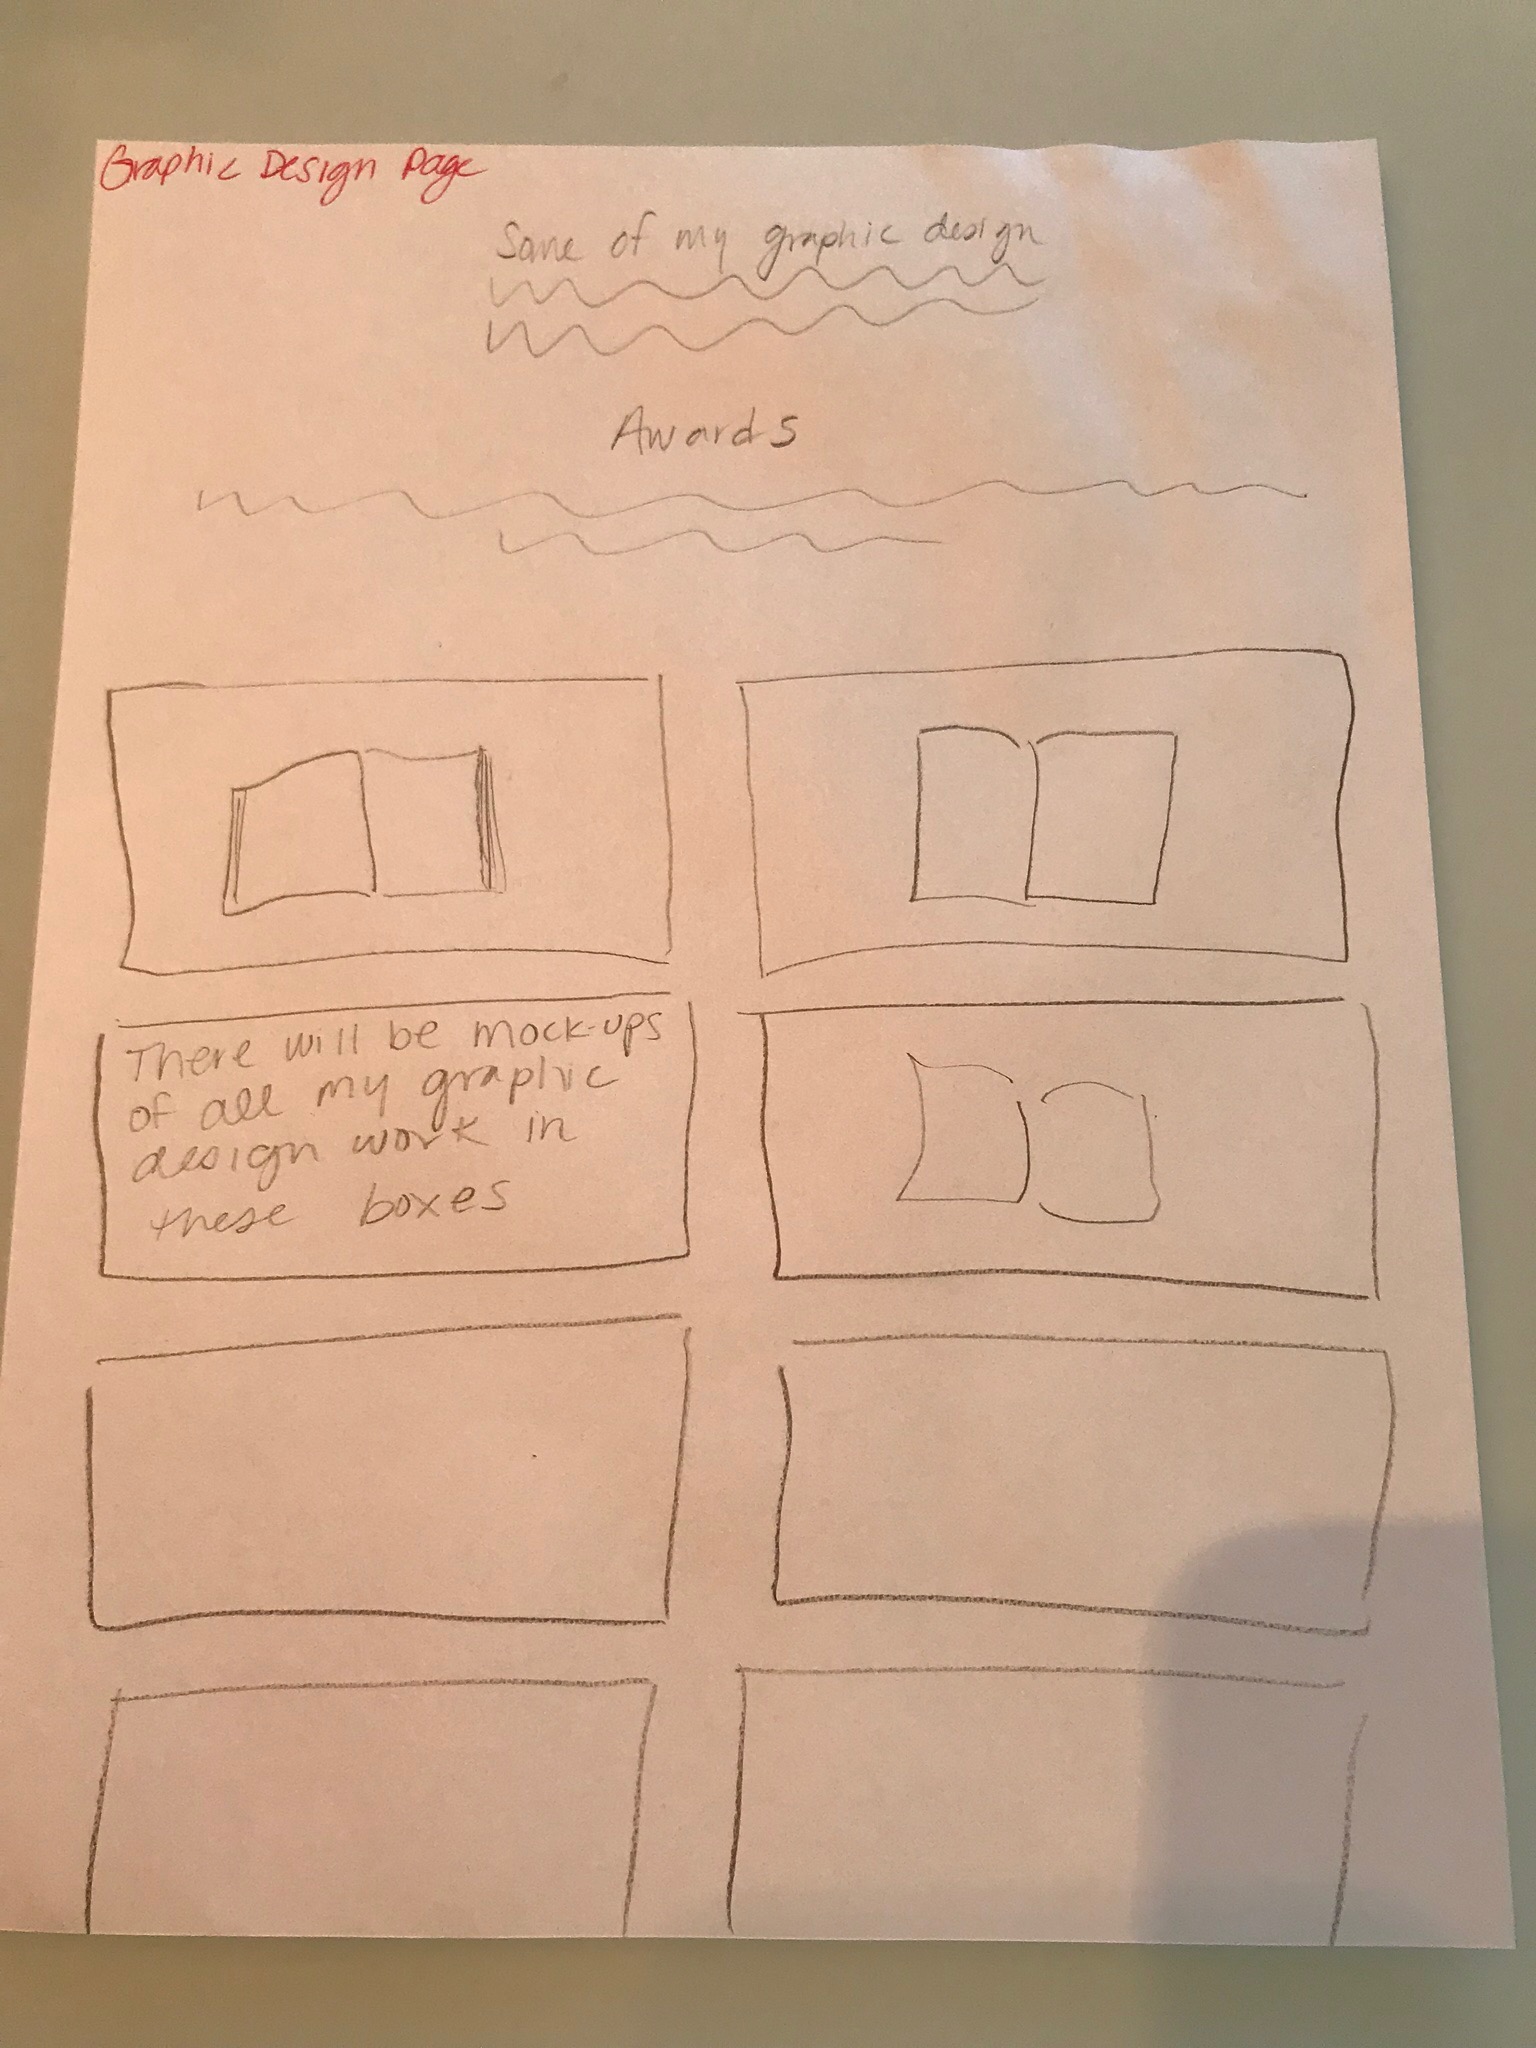 Graphic Design Page
Some of my graphic design
Awards
There will be mock-ups
of all my graphic
design work in
these boxes